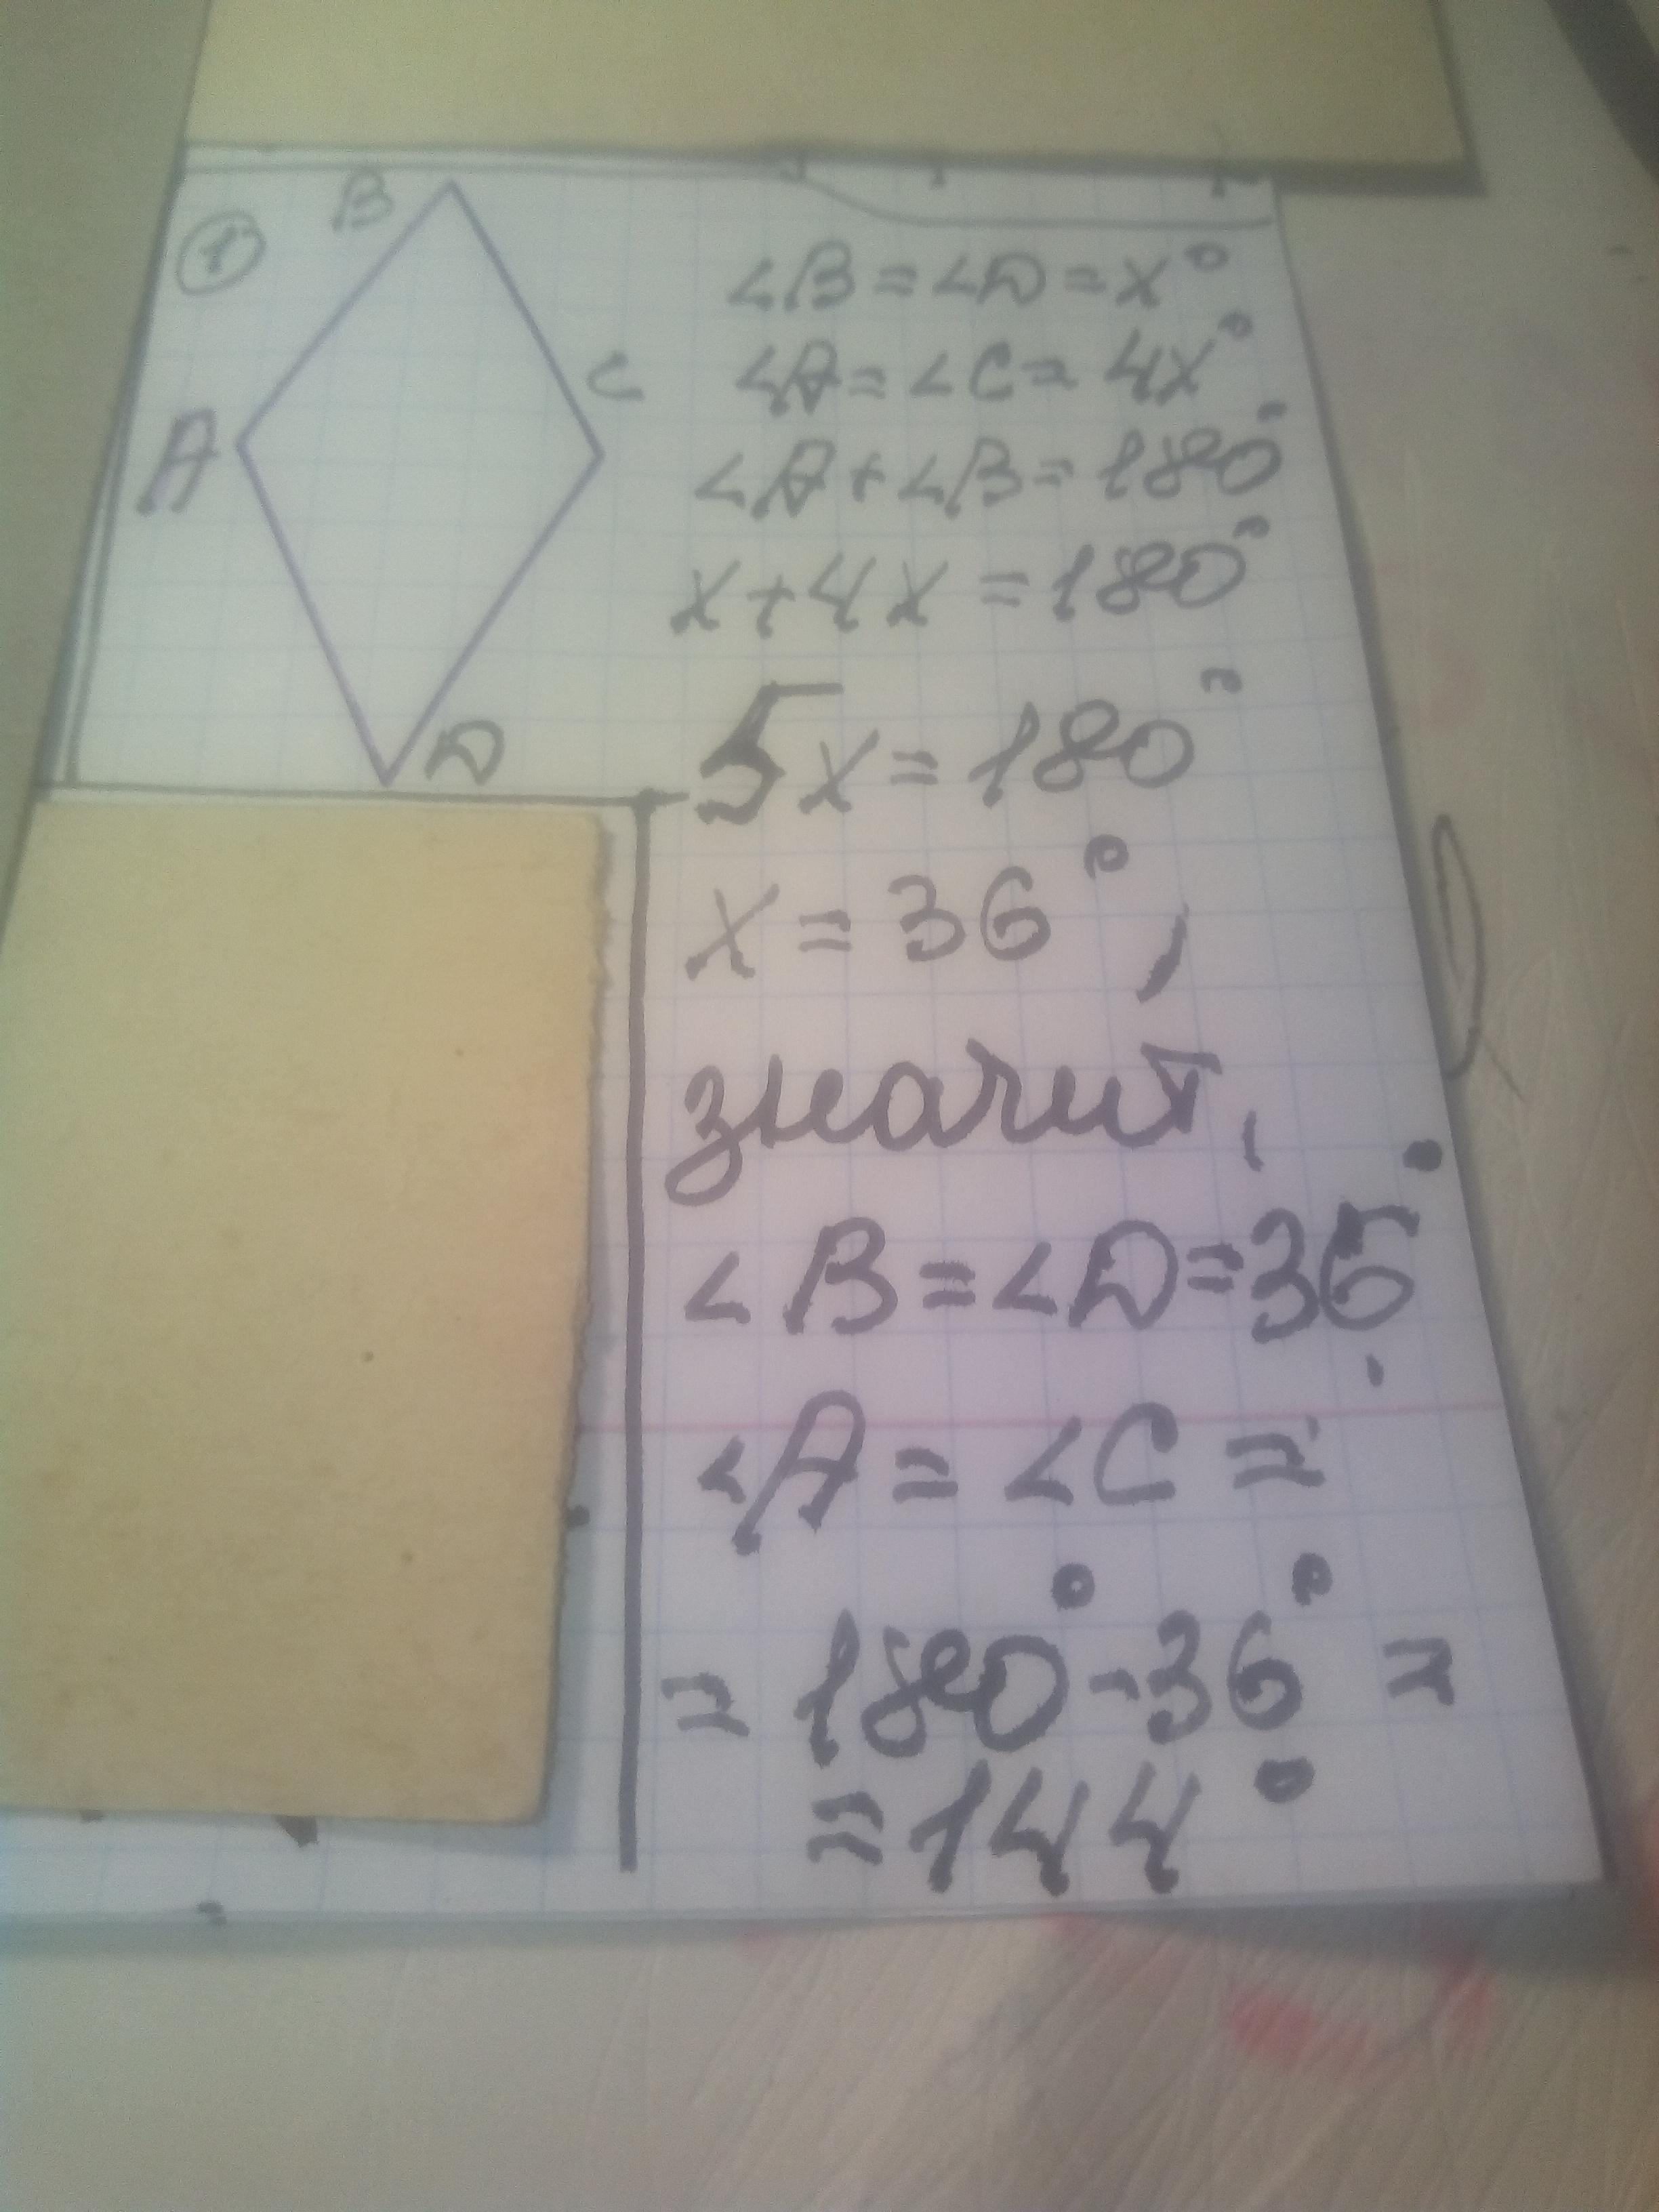 ①
B
C
A
D
∠B=∠D=x°
∠A=∠C=4x°
∠A+∠B=180°
x+4x=180°
5x=180°
x=36°,
значит,
∠B=∠D=36°
∠A=∠C=
=180°-36°=
=144°